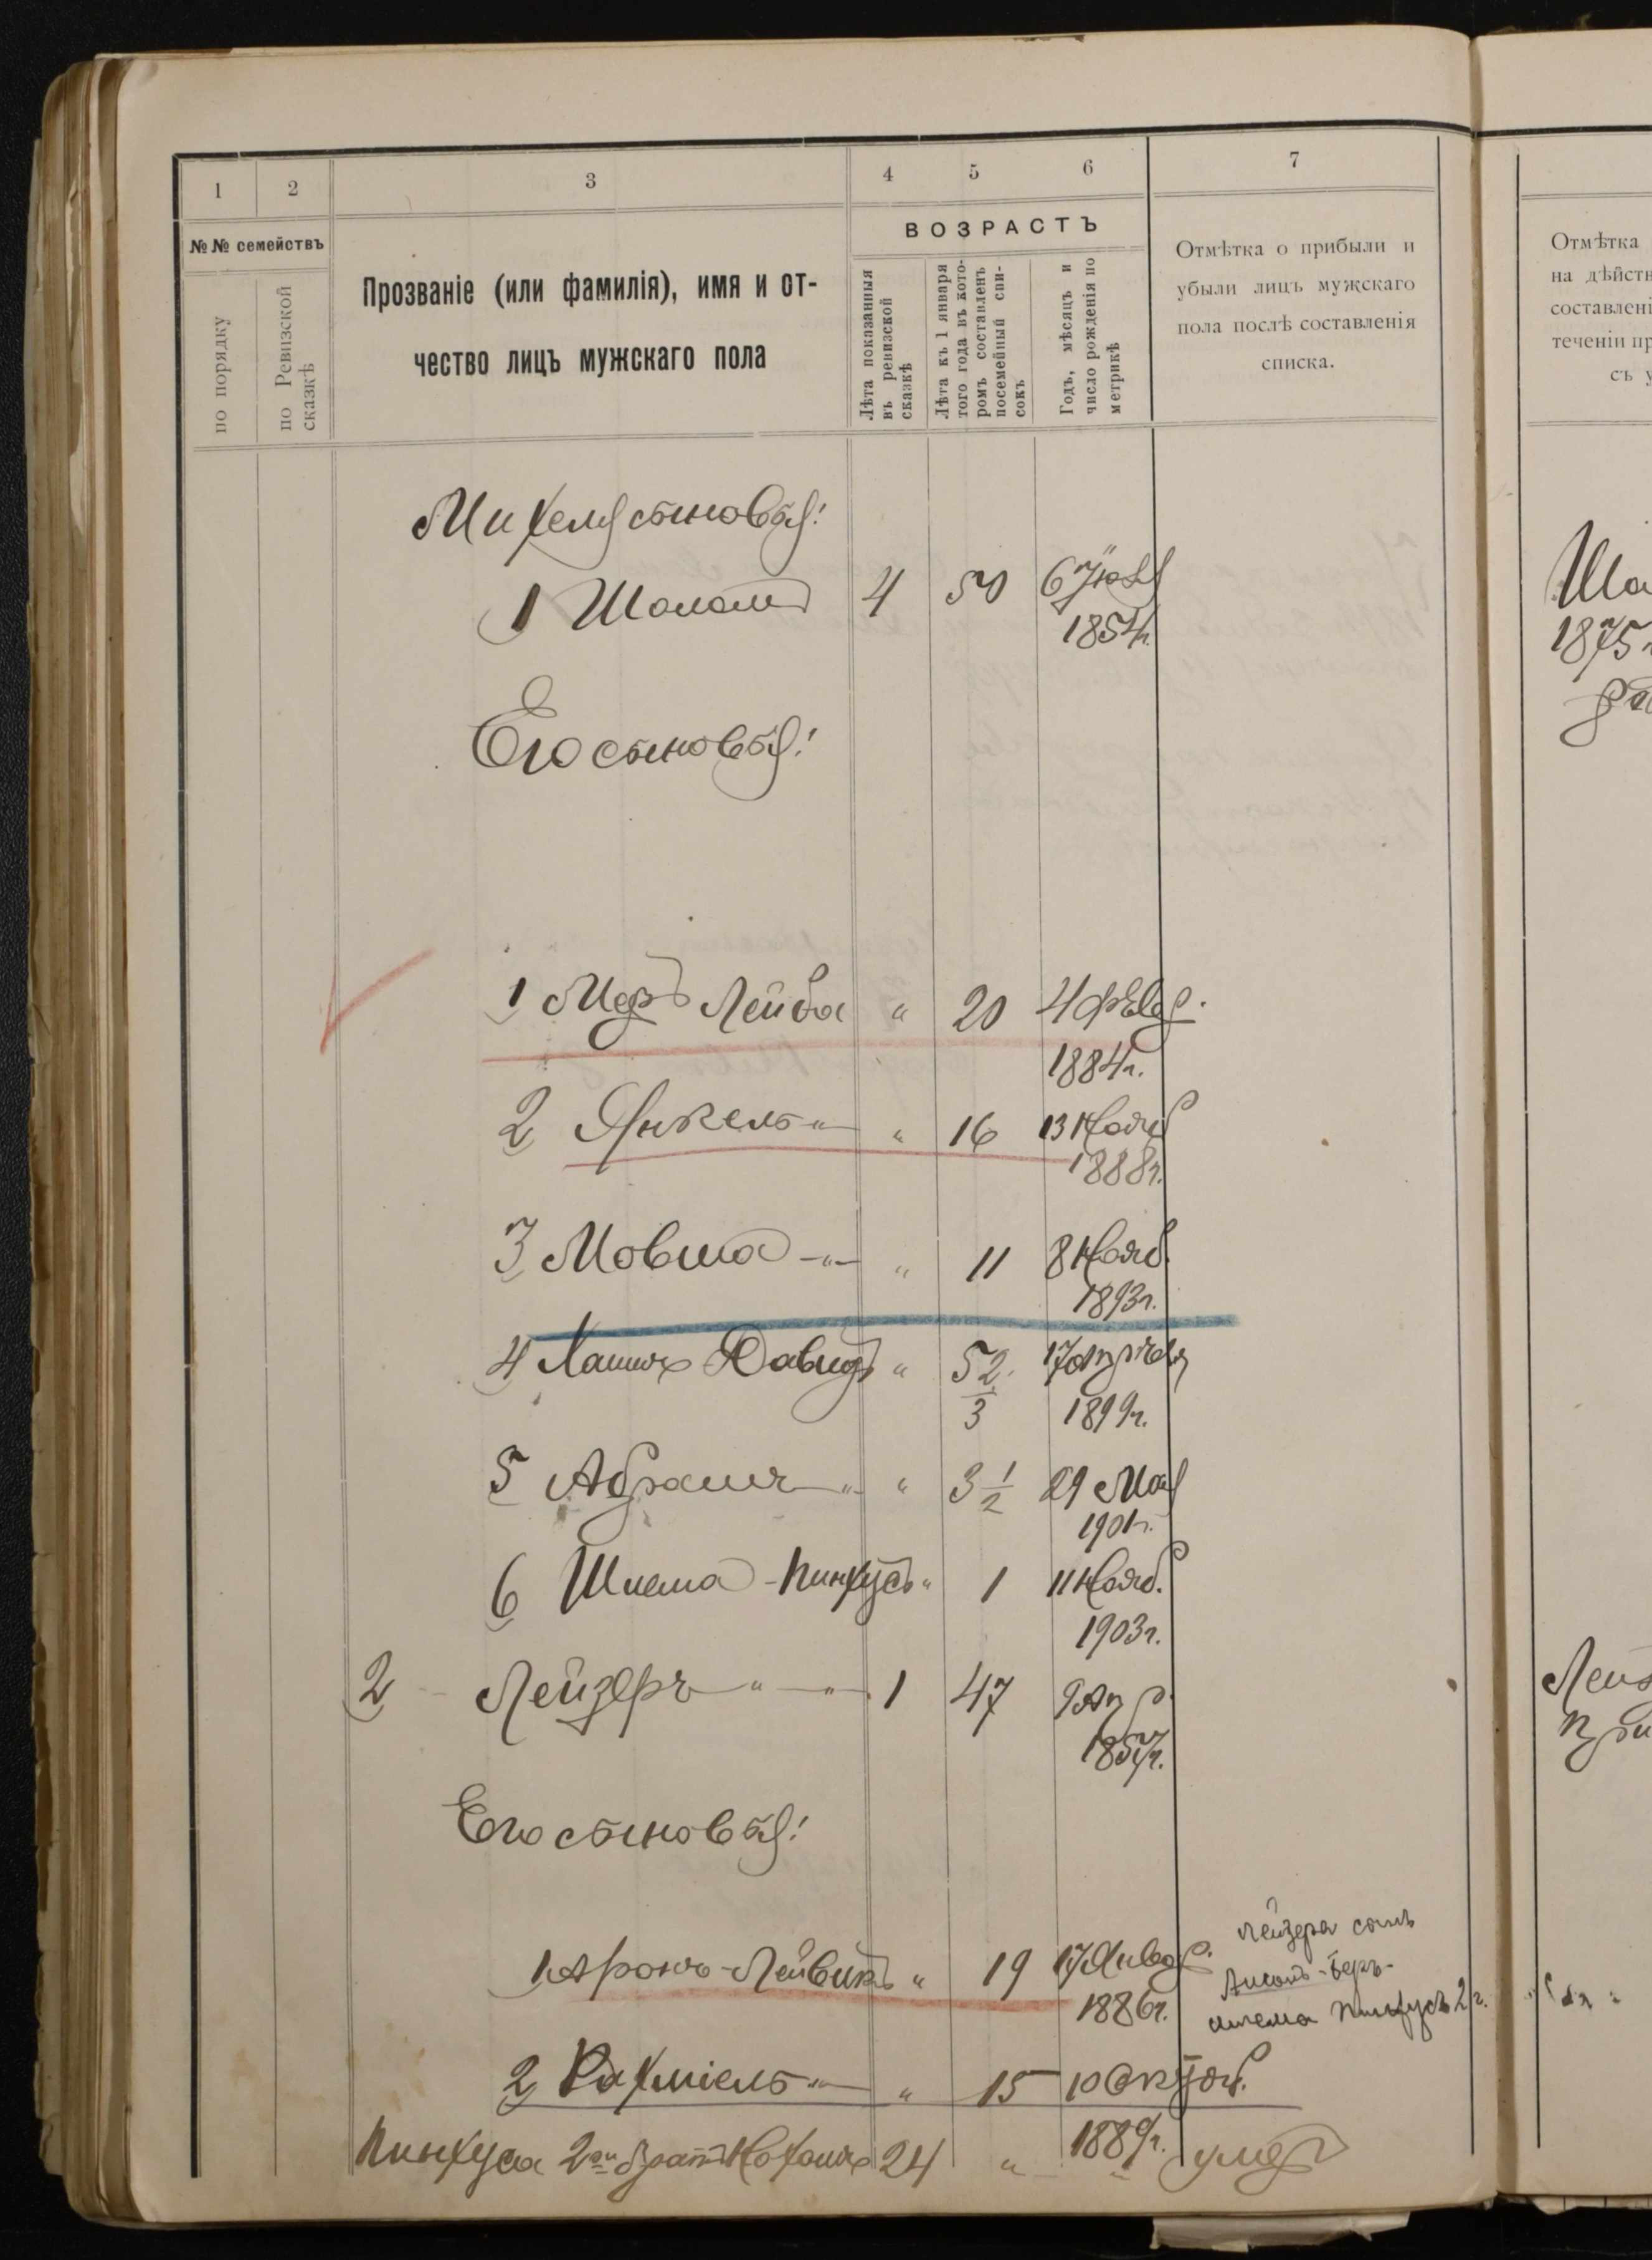 1 2 3 4 5 6 7
№№ семействъ
по порядку
по Ревизской
сказкѣ
Прозваніе (или фамилія), имя и от-
чество лицъ мужскаго пола
ВОЗРАСТЪ
Лѣта показанныя
въ ревизской
сказкѣ
Лѣта къ 1 января
того года въ кото-
ромъ составленъ
посемейный спи-
сокъ
Годъ, мѣсяцъ и
число рожденія по
метрикѣ
Отмѣтка о прибыли и
убыли лицъ мужскаго
пола послѣ составленія
списка.
Отмѣтка
на дѣйств
составлені
теченіи пр
съ у
Михеля сыновья:
1 Шолом 4 50 6
1854г.
Шо
1875
Его сыновья:
1 Меръ Лейба " 20 4 февр.
1884г.
2 Янкель " " 16 13 Нояб
1888г.
3 Мовша " " 11 8 Нояб.
1893г.
4 Давидъ " 5 2/3 17 Апрѣля
1899г.
5 Абрамъ " " 3 1/2 29 Мая
1901г.
6 Шлема-Пинхусъ " 1 11 Нояб.
1903г.
2 Лейзеръ " " 1 47 9 Апр.
1857г.
Лейз
при
Его сыновья:
Лейзера сынъ
1 Аронъ-Лейвикъ " 19 17 Январ.
1886г.
-Беръ-
шлема Пинхусъ 2 г.
2 Рахміель " " 15 10 Октяб.
1889г.
Пинхуса 2ой братъ Нохимъ 24 " " умер